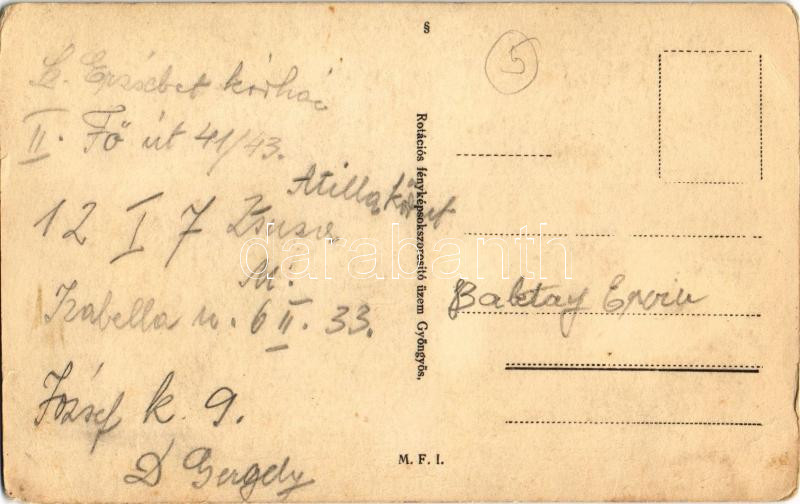 §
5
Sz. Erzsébet kórház
II. Fő út 41/43.
Atilla körút
12 I 7 Zsuzsa
Izabella u. 6 II. 33.
József k. 9.
D Gergely
Baktay Ervin
Rotációs fényképsokszorosító üzem Gyöngyös,
M. F. I.
darabanth